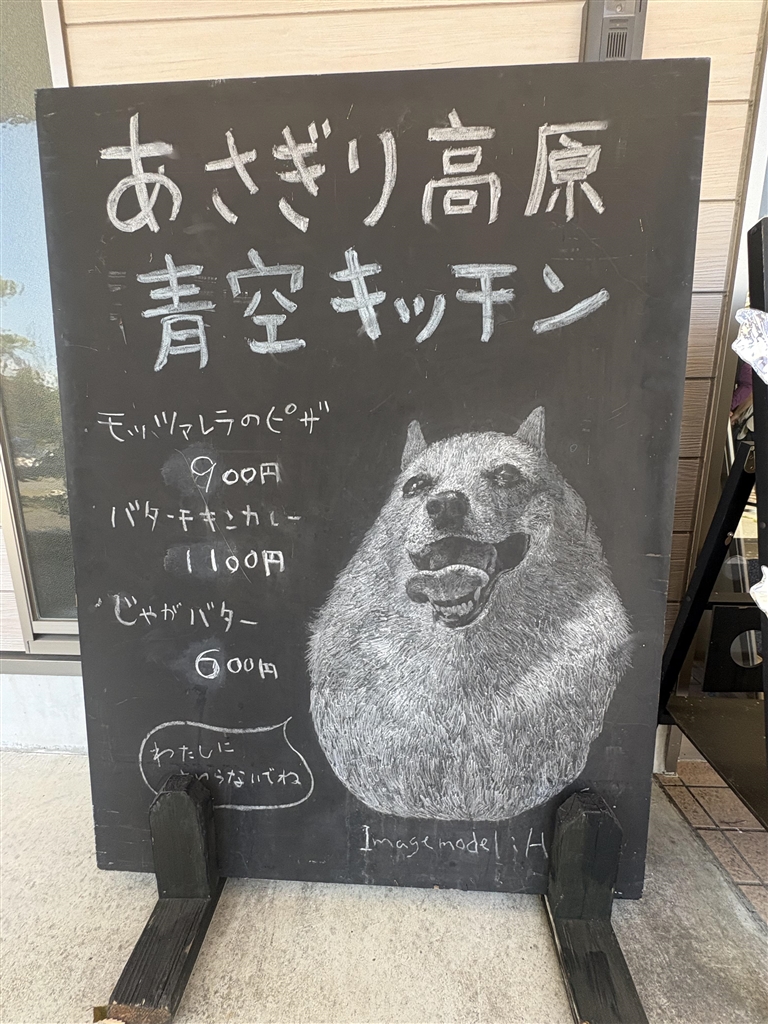 あさぎり高原
青空キッチン
モッツァレラのピザ
900円
バターチキンカレー
1100円
じゃがバター
600円
わたしに
さわらないでね
Image model : H